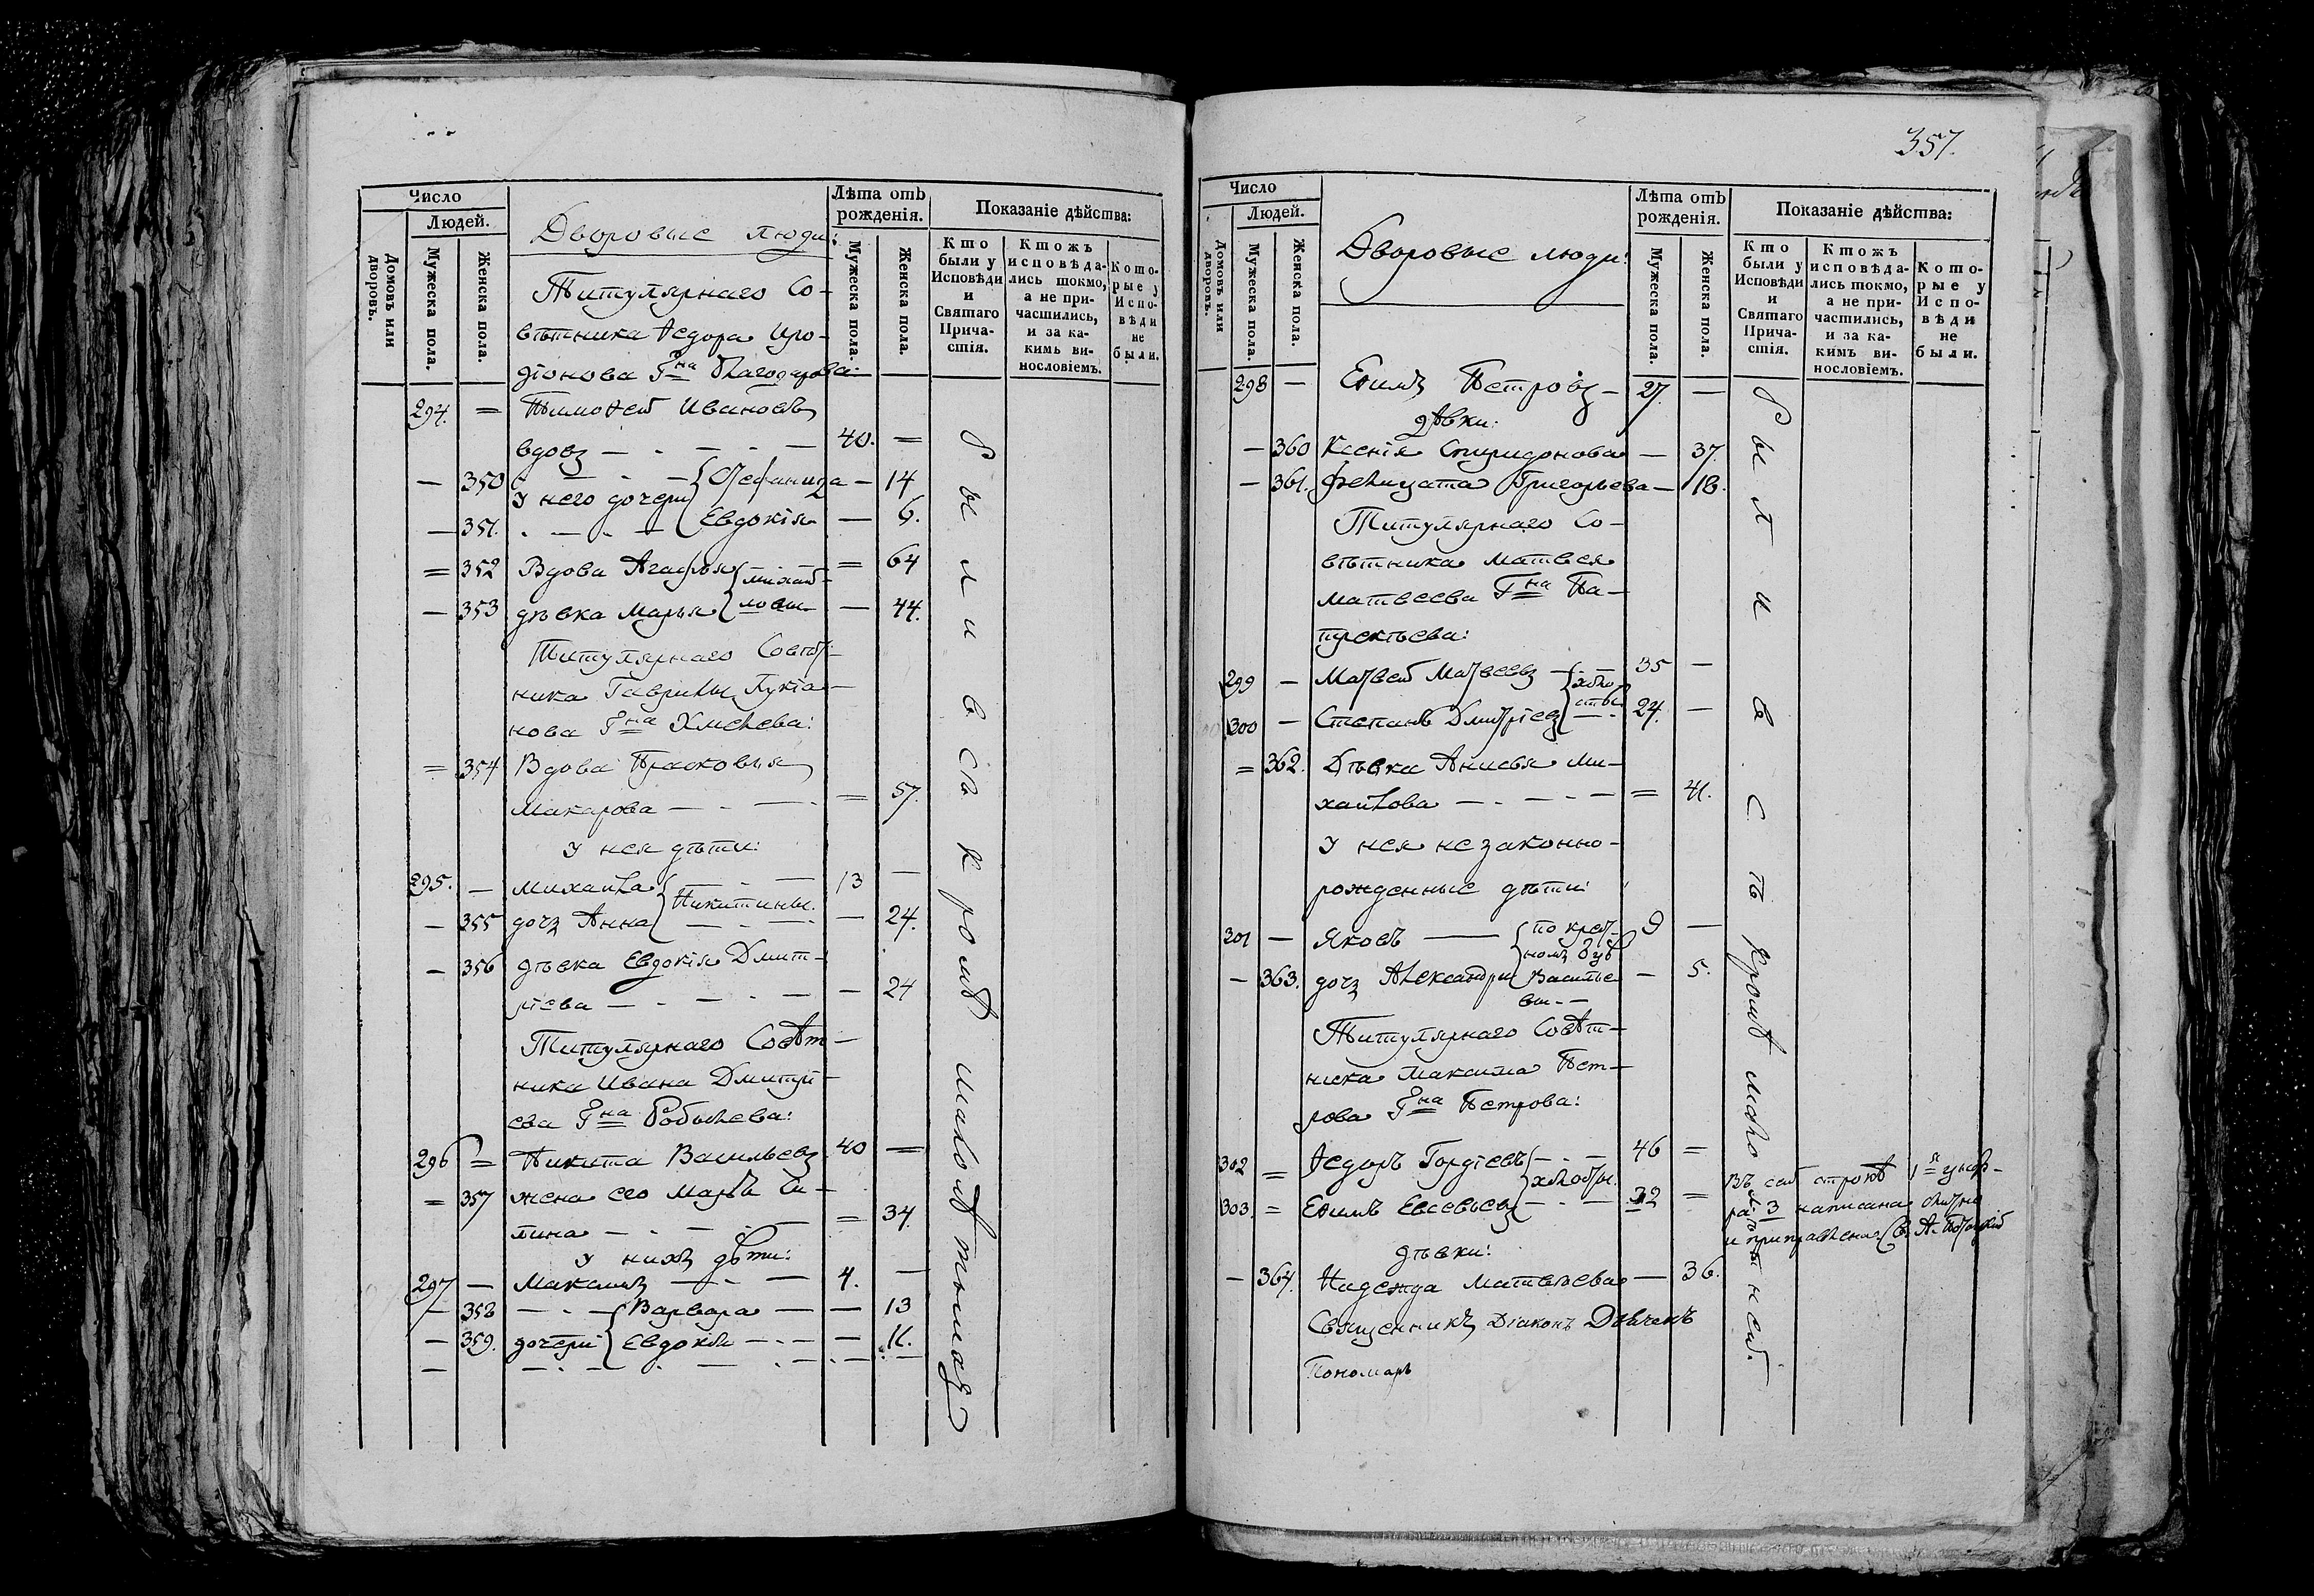 Число
Людей.
Домовъ или дворовъ.
Мужеска пола.
Женска пола.
Дворовые люди:
Лѣта отъ рожденія.
Мужеска пола.
Женска пола.
Показаніе дѣйства:
Кто были у Исповѣди и Святаго Причастія.
Ктожъ исповѣдались токмо, а не причастились, и за какимъ винословіемъ.
Которые у Исповѣди не были.
Титулярнаго Со-
вѣтника Ѳедора Иро-
діонова Гна Благодарова:
294. = Тимоѳей Ивановъ
вдовъ — 40. =
— 350 У него дочери Стефанида — 14
— 351. Евдокія — 6.
= 352 Вдова Агафья Михай- = 64
— 353 дѣвка Марья ловы — 44.
Титулярнаго Совѣт-
ника Гаврилы Лукіа-
нова Гна Хмелева:
= 354 Вдова Прасковья
Макарова — = 57.
У нея дѣти:
295. — Михайла Никитины. 13 —
— 355 дочь Анна — 24.
— 356 дѣвка Евдокія Дмит-
ріева — — 24
Титулярнаго Совѣт-
ника Ивана Дмитрі-
ева Гна Робылева:
296 = Никита Васильевъ 40 =
= 357 жена его Марѳа
лина — = 34.
У нихъ дѣти:
297 — Максимъ — 4. —
— 358 Варвара — — 13
— 359. дочери Евдокія — — 11.
были всѣ кромѣ малолѣтныхъ
357.
Число
Людей.
Домовъ или дворовъ.
Мужеска пола.
Женска пола.
Дворовые люди:
Лѣта отъ рожденія.
Мужеска пола.
Женска пола.
Показаніе дѣйства:
Кто были у Исповѣди и Святаго Причастія.
Ктожъ исповѣдались токмо, а не причастились, и за какимъ винословіемъ.
Которые у Исповѣди не были.
298 — Еѳимъ Петровъ — 27. —
дѣвки:
— 360 Ксенія Спиридонова — 37.
— 361. Фелицата Григорьева — 18.
Титулярнаго Со-
вѣтника Матвея
Матвеева Гна Па-
299 — Матвей Матвеевъ — холо- 35 —
300 — Степанъ Дмитріевъ стые 24. —
= 362. Дѣвка Анисья Ми-
хайлова — = 41.
У нея незаконно-
рожденные дѣти:
301 — Яковъ — по крест- 9 —
— 363. дочь Александра Василье- — 5.
вы. —
Титулярнаго Совѣт-
ника Максима Пет-
рова Гна Петрова:
302 = Ѳедоръ Гордіевъ 46 =
303. = Еѳимъ Евсевьевъ 32 =
дѣвки:
— 364. Надежда Матвѣева — 36.
Священникъ Діаконъ Дьячекъ
Пономарь
были всѣ кромѣ малолѣтней.
Въ сей строкѣ 1я циф-
ра 3 написана
и приправлена